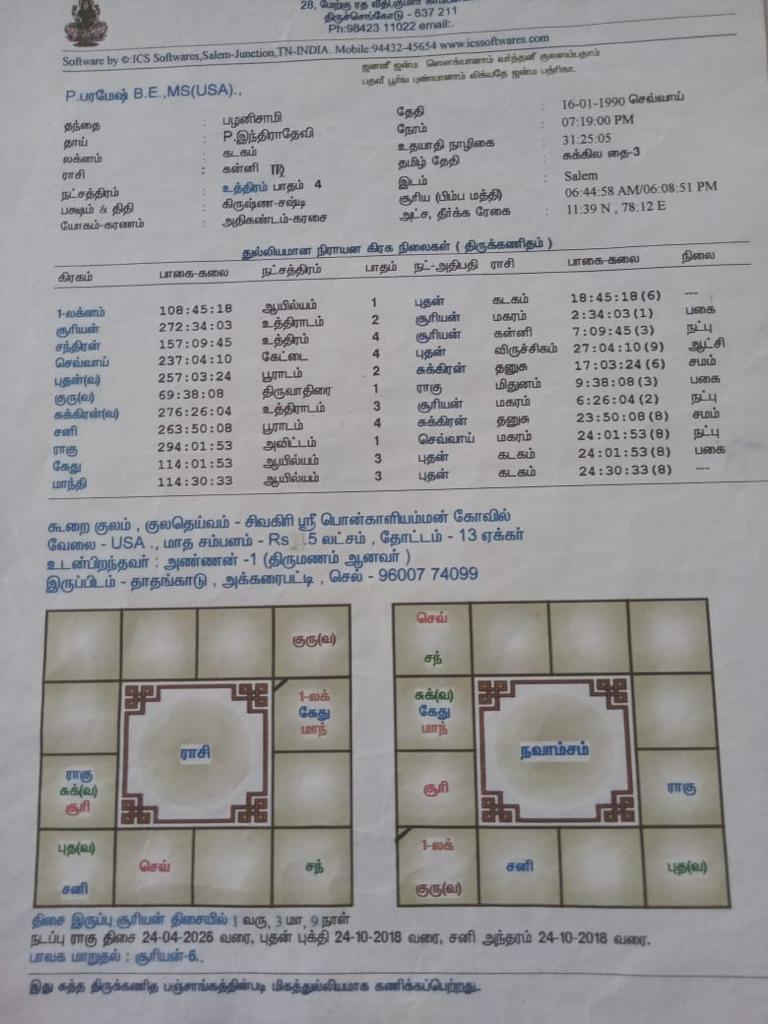 28, மேற்கு ரத வீதி,குமரன்
திருச்செங்கோடு - 637 211
Ph:98423 11022 email:.
Software by ©:ICS Softwares,Salem-Junction,TN-INDIA. Mobile:94432-45654 www.icssoftwares.com
ஜனனீ ஜன்ம ஸௌக்யானாம் வர்த்தனீ குலஸம்பதாம்
பதவீ பூர்வ புண்யானாம் லிக்யதே ஜன்ம பத்ரிகா.
P.பரமேஷ் B.E.,MS(USA).,
தந்தை : பழனிசாமி தேதி : 16-01-1990 செவ்வாய்
தாய் : P.இந்திராதேவி நேரம் : 07:19:00 PM
லக்னம் : கடகம் உதயாதி நாழிகை : 31:25:05
ராசி : கன்னி ♍ தமிழ் தேதி : சுக்கில தை-3
நட்சத்திரம் : உத்திரம் பாதம் 4 இடம் : Salem
பக்ஷம் & திதி : கிருஷ்ண-சஷ்டி சூரிய (பிம்ப மத்தி) : 06:44:58 AM/06:08:51 PM
யோகம்-கரணம் : அதிகண்டம்-கரசை அட்ச, தீர்க்க ரேகை : 11:39 N , 78:12 E
துல்லியமான நிராயன கிரக நிலைகள் ( திருக்கணிதம் )
கிரகம் பாகை-கலை நட்சத்திரம் பாதம் நட்-அதிபதி ராசி பாகை-கலை நிலை
1-லக்னம் 108:45:18 ஆயில்யம் 1 புதன் கடகம் 18:45:18(6) ---
சூரியன் 272:34:03 உத்திராடம் 2 சூரியன் மகரம் 2:34:03(1) பகை
சந்திரன் 157:09:45 உத்திரம் 4 சூரியன் கன்னி 7:09:45(3) நட்பு
செவ்வாய் 237:04:10 கேட்டை 4 புதன் விருச்சிகம் 27:04:10(9) ஆட்சி
புதன்(வ) 257:03:24 பூராடம் 2 சுக்கிரன் தனுசு 17:03:24(6) சமம்
குரு(வ) 69:38:08 திருவாதிரை 1 ராகு மிதுனம் 9:38:08(3) பகை
சுக்கிரன்(வ) 276:26:04 உத்திராடம் 3 சூரியன் மகரம் 6:26:04(2) நட்பு
சனி 263:50:08 பூராடம் 4 சுக்கிரன் தனுசு 23:50:08(8) சமம்
ராகு 294:01:53 அவிட்டம் 1 செவ்வாய் மகரம் 24:01:53(8) நட்பு
கேது 114:01:53 ஆயில்யம் 3 புதன் கடகம் 24:01:53(8) பகை
மாந்தி 114:30:33 ஆயில்யம் 3 புதன் கடகம் 24:30:33(8) ---
கூறை குலம் , குலதெய்வம் - சிவகிரி ஸ்ரீ பொன்காளியம்மன் கோவில்
வேலை - USA ., மாத சம்பளம் - Rs .5 லட்சம் , தோட்டம் - 13 ஏக்கர்
உடன்பிறந்தவர் : அண்ணன் -1 (திருமணம் ஆனவர் )
இருப்பிடம் - தாதங்காடு , அக்கரைபட்டி , செல் - 96007 74099
குரு(வ)
1-லக்
கேது
மாந்
ராசி
ராகு
சுக்(வ)
சூரி
புத(வ)
சனி
செவ்
சந்
செவ்
சந்
சுக்(வ)
கேது
மாந்
நவாம்சம்
சூரி
ராகு
1-லக்
குரு(வ)
சனி
புத(வ)
திசை இருப்பு சூரியன் திசையில் 1 வரு, 3 மா, 9 நாள்
நடப்பு ராகு திசை 24-04-2026 வரை, புதன் புக்தி 24-10-2018 வரை, சனி அந்தரம் 24-10-2018 வரை.
பாவக மாறுதல் : சூரியன்-6.,
இது சுத்த திருக்கணித பஞ்சாங்கத்தின்படி மிகத்துல்லியமாக கணிக்கப்பெற்றது.